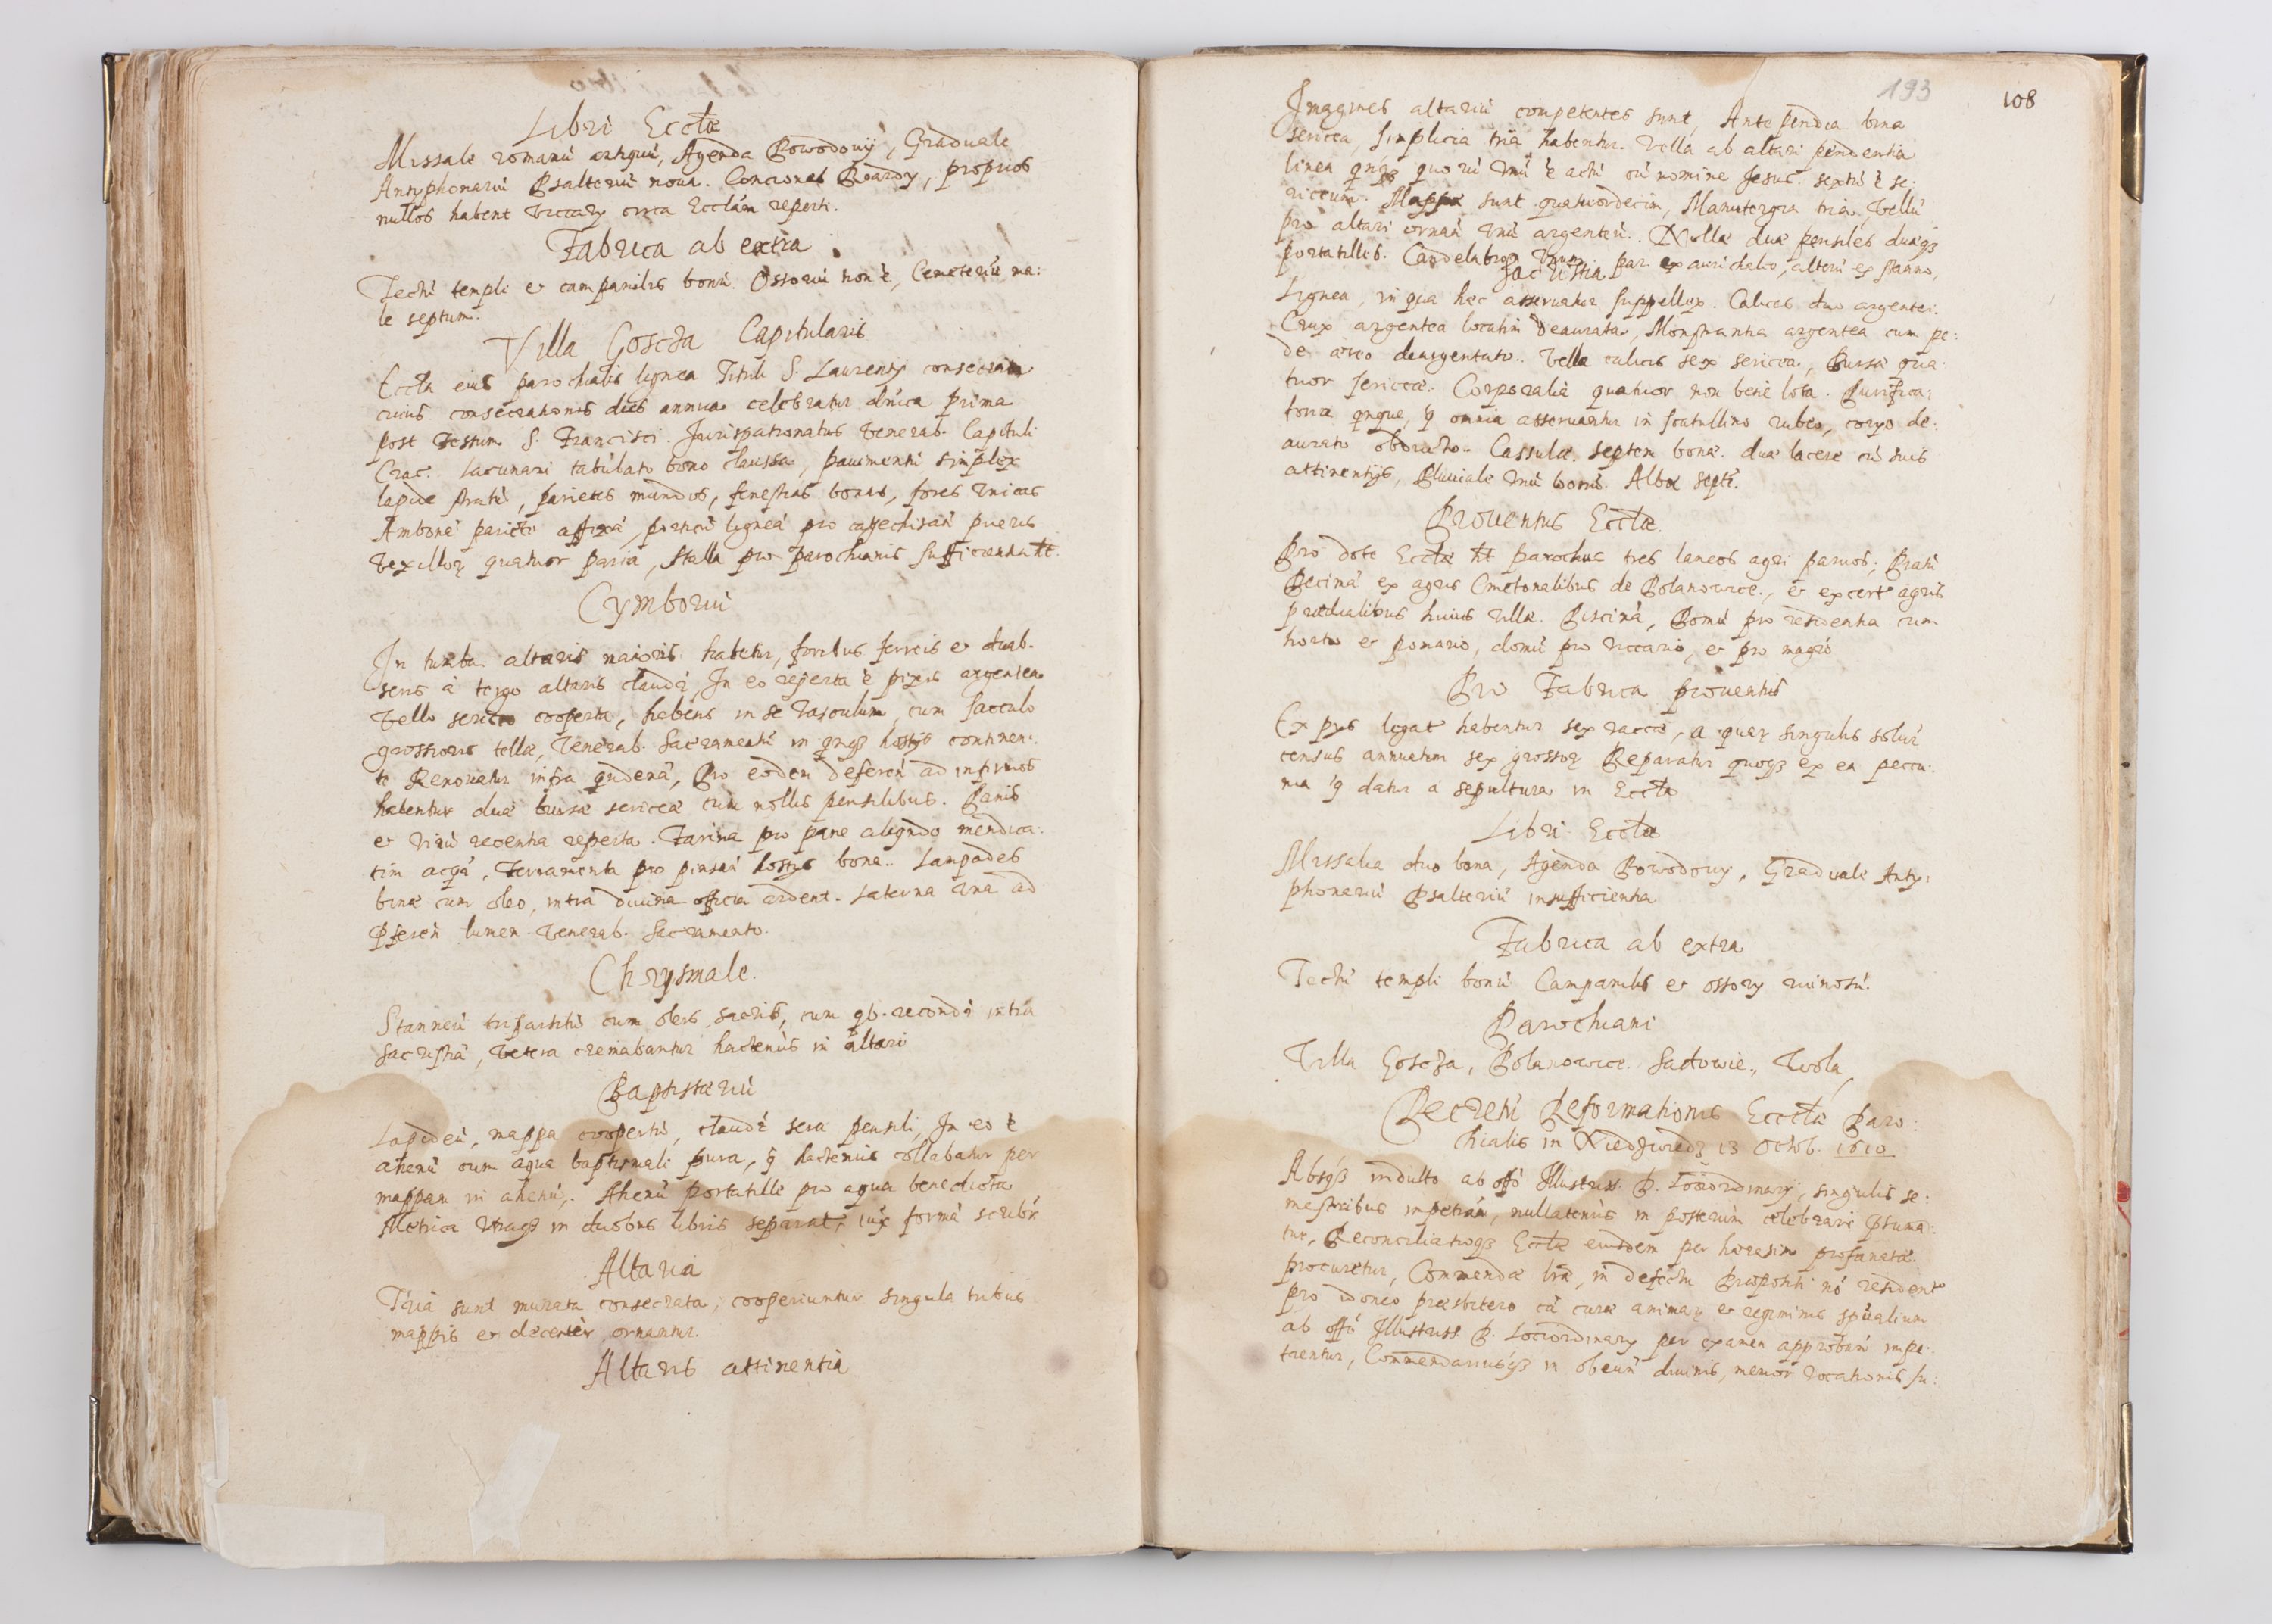 Libri Ecclae
Missale romanū antiquū, Agenda Powodovij, Graduale
Antyphonariū Psalteriū noua. Conciones proprios
nullos habent Viccarÿ circa Ecclām reperti.
Fabrica ab extra
Tectū templi et campanilis bonū. Ossoriū non ē, Cemeteriū ma:
le septum.
Villa Goscża Capitularis
Eccła eius parochialis lignea Tituli S. Laurentij consecrata
cuius consecrationis dies annua celebratur dnica prima
post Festum S. Francisci. Jurispatronatus Venerab. Capituli
Crac. Lacunari tabulato bono claussa, pauimentū simplex
lapide stratū, parietes mundos, fenestras bonas, fores unicas
Ambonē parieti affixā, porticū ligneā pro cathechisañ pueris
Vexilloꝝ quatuor paria, Stalla pro parochianis sufficientia ħt.
Cymboriū
In tumba altaris maioris habetur, foribus ferreis et duab.
seris à tergo altaris claudr̄, In eo reperta ē pixis argentea
Vello sericeo cooperta, habens in se vasculum cum sacculo
grossioris tellae, Venerab. Sacramentū in qnqꝫ hostijs continen:
te Renouatur infra qndenā, Pro eodem deferen̄ ad infirmos
habentur duae bursae sericeae cum nollis pensilibus. Panis
et vinū recentia reperta. Farina pro pane aliqndo mendica:
tim acqr̄. Ferramenta pro pinsan̄ hostijs bona. Lampades
binae cum oleo, intra diuina officia ardent. Laterna una ad
ꝑferen̄ lumen Venerab. Sacramento.
Chrysmale.
Stanneū tripartitū cum oleis sacris, cum qb. recondr̄ intra
Sacristiā, Vetera cremabantur hactenus in altari
Baptisteriū
Lapideū, mappa coopertū, claudr̄ sera pensili, In eo ē
ahenū cum aqua baptismali pura, q̄ hactenus collabatur per
mappam in ahenū. Ahenū portatille pro aqua benedicta
Metrica vtraqꝫ in duobus libris separat, iux formā scribr̄
Altaria
Tria sunt murata consecrata, cooperiuntur singula tribus
mappis et decenter ornantur.
Altaris attinentia
193
108
Imagines altariū competentes sunt, Antependia bina
sericea, simplicia tria habentur. Vella ab altari pendentia
linea qnqꝫ quorū unū ē actū cū nomine Jesus. sextū ē se:
riceum. Mappae sunt quatuordecim, Manutergia tria, Vellū
pro altari ornan̄ unū argenteū. Nollae duae pensiles duaeqꝫ
portatilles. Candelabroꝝ unum par ex aurichalco, alterū ex stanno,
Sacristia
Lignea, in qua haec asseruatur suppellex. Calices duo argentei.
Crux argentea locatim deaurata, Monstrantia argentea cum pe:
de aereo deargentato. Vella calicis sex sericea, Bursae qua:
tuor sericeae. Corporalia quatuor non bene lota. Purifica:
toria qnque, q̄ omnia asseruantur in scatullino rubeo, corio de:
aurato obducto. Cassulae septem bonae. duae lacerae cū suis
attinentijs, Pluuiale unū bonū. Albae septē.
Prouentus Ecclae.
Pro dote Ecclae ħt parochus tres laneos agri paruos, Pratū
Decimā ex agris Cmetonalibus de Polanowice., et ex cert agris
praedialibus huius villae. Piscinā, Domū pro residentia cum
horto et pomario, domū pro viccario, et pro magrō
Pro Fabrica prouentus
Ex pijs legat habentur sex vaccae, a quaꝝ singulis solur̄
census annuatim sex grossoꝝ Reparatur quoqꝫ ex ea pecu:
nia q̄ datur a sepultura in Eccła
Libri Ecclae
Missalia duo bona, Agenda Powodovij, Graduale Anty:
phonariū Psalteriū insufficientia
Fabrica ab extra
Tectū templi bonū Campanilis et ossorÿ ruinosū.
Parochiani
Villa Goscża, Polanowice. Sadowie., Wola
Decretū Reformationis Ecclae Paro:
chialis in Niedzwiedz 13 Octob. 1610
Absqꝫ indulto ab offō Illustriss. D. Lociordinarÿ, singulis se:
mestribus impetran̄, nullatenus in posterum celebrari ꝑsuma:
tur, Reconciliatioqꝫ Ecclae eiusdem per haeresim profanatae
procuretur, Commendae lrae, in defectu Praepositi nō resident
pro idoneo praesbitero cū cura animaꝝ et regiminis spūalium
ab offō Illustriss. D. Lociordinarÿ per examen approban̄ impe:
trentur, Commendariusqꝫ in obeun̄ diuinis, memor vocationis su: